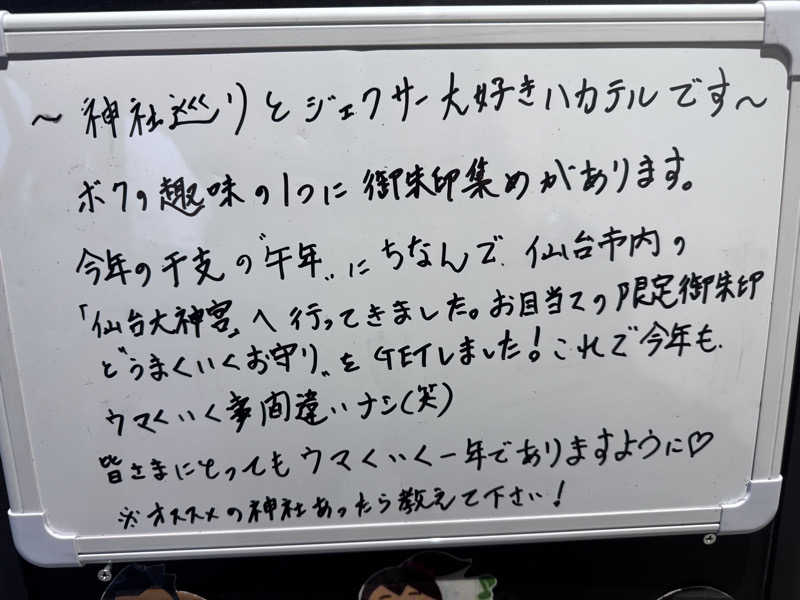 ～神社巡りとジェクサー大好きハカテルです～
ボクの趣味の1つに御朱印集めがあります。
今年の干支の"午年"にちなんで、仙台市内の
「仙台大神宮」へ行ってきました。お目当ての限定御朱印
と"うまくいくお守り"をGETしました!これで今年も、
ウマくいく事間違いナシ(笑)
皆さまにとってもウマくいく一年でありますように♡
※オススメの神社あったら教えて下さい!